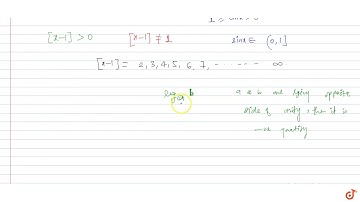 [x-1] > 0 [x-1] ≠ 1 sinx ∈ (0,1]
[x-1] = 2, 3, 4, 5, 6, 7, ------- ∞
log b a & b are lying opposite
side of unity, then it is
-ve quantity